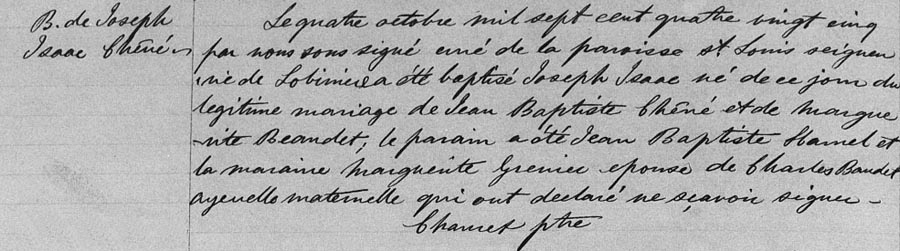 B. de Joseph
Isaac Chêné
Le quatre octobre mil sept cent quatre vingt cinq
par nous sous signé curé de la paroisse St Louis seigneu
rie de Lobinière a été baptisé Joseph Isaac né de ce jour du
legitime mariage de Jean Baptiste Chêné et de Margue
-rite Beaudet, le parain a été Jean Baptiste Hamel et
la maraine Marguerite Grenier epouse de Charles Baudet
ayeulle maternelle qui ont declaré ne sçavoir signer -
ptre